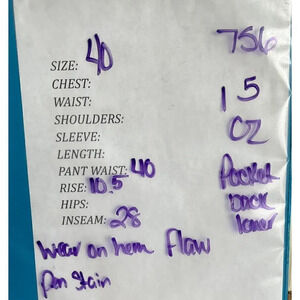 756
SIZE: 40
CHEST:
WAIST: 1 5
SHOULDERS:
SLEEVE: OZ
LENGTH:
PANT WAIST: 40 Pocket
RISE: 10.5 back
HIPS: lower
INSEAM: 28
Wear on hem Flaw
Pen Stain